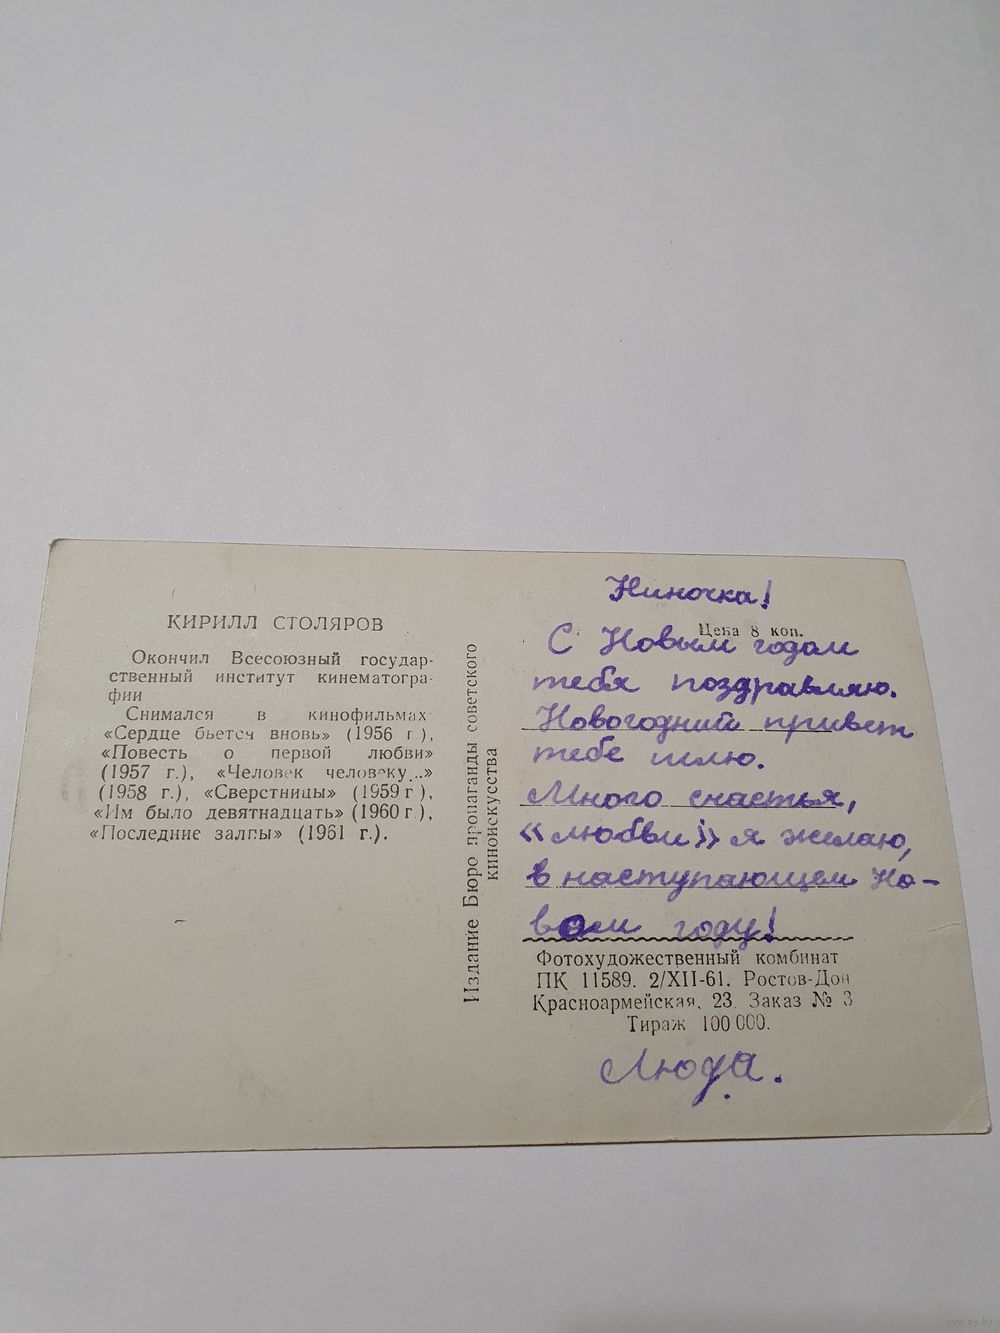 КИРИЛЛ СТОЛЯРОВ
Окончил Всесоюзный государ-
ственный институт кинематогра-
фии
Снимался в кинофильмах
«Сердце бьется вновь» (1956 г.),
«Повесть о первой любви»
(1957 г.), «Человек человеку...»
(1958 г.), «Сверстницы» (1959 г),
«Им было девятнадцать» (1960 г.),
«Последние залпы» (1961 г.).
Издание Бюро пропаганды советского
киноискусства
Ниночка!
Цена 8 коп.
С Новым годом
тебя поздравляю.
Новогодний привет
тебе шлю.
Много счастья,
«любви» я желаю,
в наступающем Но-
вом году!
Фотохудожественный комбинат
ПК 11589. 2/XII-61. Ростов-Дон
Красноармейская, 23. Заказ № 3
Тираж 100 000.
Люда.
www.ay.by